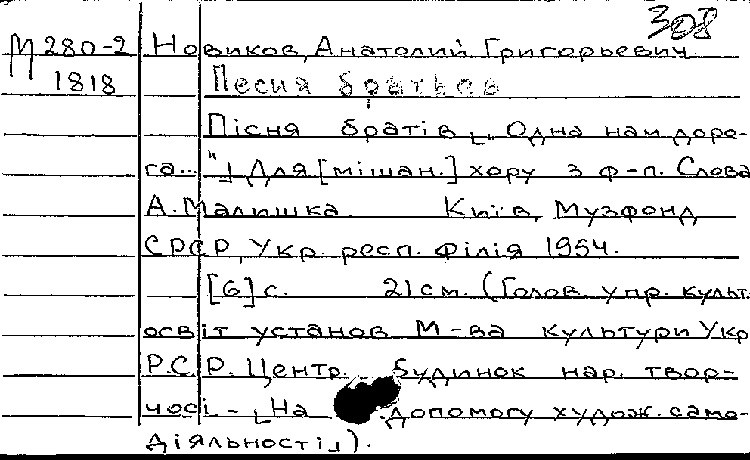 308
М 280-2 Новиков, Анатолий Григорьевич.
1818 Песня братьев
Пісня братів ⌞„Одна нам доро-
га..."⌟ Для [мішан.] хору з ф-п. Слова
А. Малишка. Київ, Музфонд
СРСР, Укр. респ. філія 1954.
[6] с. 21 см. (Голов. упр. культ.
освіт установ М-ва культури Укр
Р.С.Р. Центр. будинок нар. твор-
чості - ⌞На допомогу худож. само-
діяльності⌟).